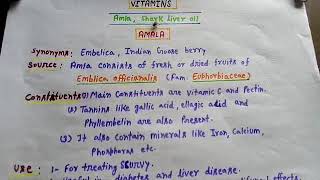 VITAMINS
Amla, Shark liver oil
AMALA
Synonyms: Embelica, Indian Goose berry.
Source: Amla consists of fresh or dried fruits of
Emblica officinalis (Fam Euphorbiaceae)
Constituents: (1) Main Constituents are vitamin C and Pectin.
(2) Tannins like gallic acid, ellagic acid and
Phyllembelin are also Present.
(3) It also contain minerals like Iron, Calcium,
Phosphorus etc.
Use: 1- For treating Scurvy.
diabetes and liver disease.
effects.